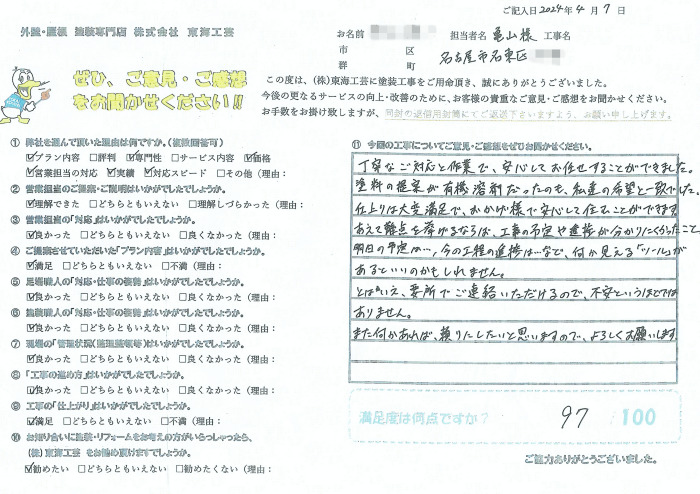 ご記入日 2024年 4月 7日
外壁・屋根 塗装専門店 株式会社 東海工芸
お名前 担当者名 亀山様 工事名
市 区 名古屋市名東区
群 町
ぜひ、ご意見・ご感想
をお聞かせください!!
この度は、(株)東海工芸に塗装工事をご用命頂き、誠にありがとうございました。
今後の更なるサービスの向上・改善のために、お客様の貴重なご意見・ご感想をお聞かせください。
お手数をお掛け致しますが、同封の返信用封筒にてご返送下さいますよう、お願い申し上げます。
① 弊社を選んで頂いた理由は何ですか。(複数回答可)
☑プラン内容 □評判 ☑専門性 □サービス内容 ☑価格
☑営業担当の対応 ☑実績 ☑対応スピード □その他(理由:
② 営業担当のご提案・ご説明はいかがでしたでしょうか。
☑理解できた □どちらともいえない □理解しづらかった(理由:
③ 営業担当の「対応」はいかがでしたでしょうか。
☑良かった □どちらともいえない □良くなかった(理由:
④ ご提案させていただいた「プラン内容」はいかがでしたでしょうか。
☑満足 □どちらともいえない □不満(理由:
⑤ 足場職人の「対応・仕事の姿勢」はいかがでしたでしょうか。
☑良かった □どちらともいえない □良くなかった(理由:
⑥ 塗装職人の「対応・仕事の姿勢」はいかがでしたでしょうか。
☑良かった □どちらともいえない □良くなかった(理由:
⑦ 現場の「管理状況(整理整頓等)」はいかがでしたでしょうか。
☑良かった □どちらともいえない □良くなかった(理由:
⑧ 「工事の進め方」はいかがでしたでしょうか。
☑良かった □どちらともいえない □良くなかった(理由:
⑨ 工事の「仕上がり」はいかがでしたでしょうか。
☑満足 □どちらともいえない □不満(理由:
⑩ お知り合いに塗装・リフォームをお考えの方がいらっしゃったら、
(株)東海工芸 をお勧め頂けますでしょうか。
☑勧めたい □どちらともいえない □勧めたくない(理由:
⑪ 今回の工事についてご意見・ご感想をぜひお聞かせください。
丁寧なご対応と作業で、安心してお任せすることができました。
塗料の提案が有機溶剤だったのも、私達の希望と一致でした。
仕上りは大変満足で、おかげ様で安心して住むことができます。
あえて難点を挙げるならば、工事の予定や進捗が分かりにくかったこと。
明日の予定は…、今の工程の進捗は…など、何か見える「ツール」が
あるといいのかもしれません。
とはいえ、要所でご連絡いただけるので、不安というほどでは
ありません。
また何かあれば、頼りにしたいと思いますので、よろしくお願いします。
満足度は何点ですか? 97 100
ご協力ありがとうございました。